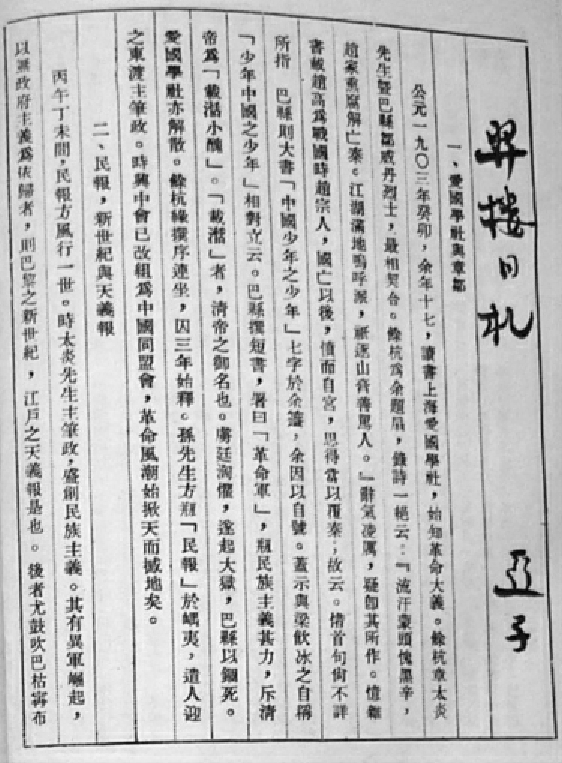 羿樓日札
亞子
一、愛國學社與章鄒
公元一九〇三年癸卯，余年十七，讀書上海愛國學社，始知革命大義。餘杭章太炎
先生暨巴縣鄒威丹烈士，最相契合。餘杭為余題扇，錄詩一絕云：『流汗蒙頭愧黑辛，
趙家熏腐解亡秦。江湖滿地嗚呼派，祇逐山膏善罵人。』辭氣凌厲，疑卽其所作。憶雜
書載趙高爲戰國時趙宗人，國亡以後，憤而自宮，思得當以覆秦；故云。惜首句尙不詳
所指 巴縣則大書「中國少年之少年」七字於余箑，余因以自號。蓋示與梁飲冰之自稱
「少年中國之少年」相對立云。巴縣撰短書，署曰「革命軍」，瓶民族主義甚力，斥清
帝爲「載湉小醜」。「載湉」者，清帝之御名也。虜廷洶懼，遂起大獄，巴縣以錮死。
愛國學社亦解散。餘杭緣撰序連坐，囚三年始釋。孫先生方瓶「民報」於嵎夷，遣人迎
之東渡主筆政。時興中會已改組爲中國同盟會，革命風潮始掀天而撼地矣。
二、民報，新世紀與天義報
丙午丁未間，民報方風行一世。時太炎先生主筆政，盛創民族主義。其有異軍崛起，
以無政府主義爲依歸者，則巴黎之新世紀，江戶之天義報是也。後者尤鼓吹巴枯寗布